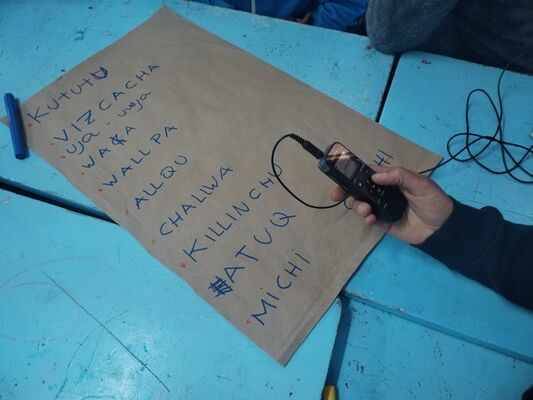 KUTUTU
VIZCACHA
uja - uwja
WAKA
WALLPA
ALLQU
CHALLWA
KILLINCHU
ATUQ
MICHI
HI